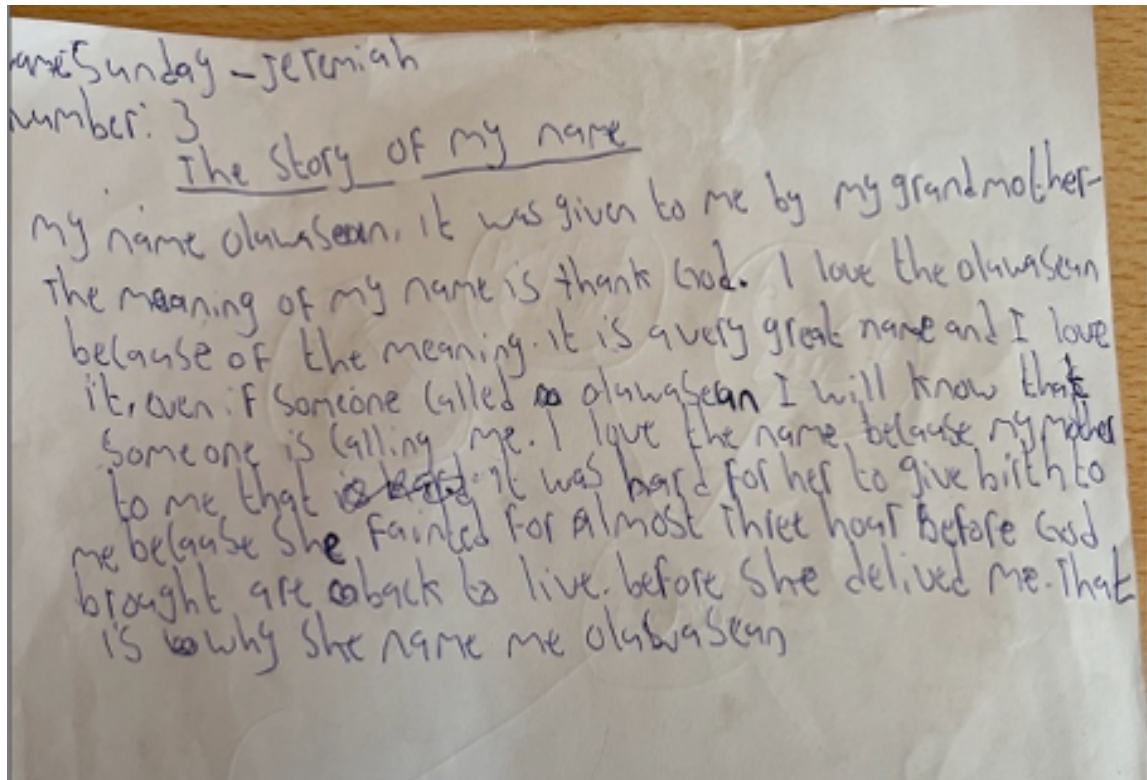 ame: Sunday - Jeremiah
Number: 3
The Story of my name
my name oluwasean, it was given to me by my grandmother-
The meaning of my name is thank God. I love the oluwasean
because of the meaning. it is a very great name and I love
it, even if someone called oluwasean I will know that
someone is calling me. I love the name because my mother
to me that it was hard for her to give birth to
me because she fainted for Almost Three hour Before God
brought are back to live. before she delived me. That
is why she name me oluwasean